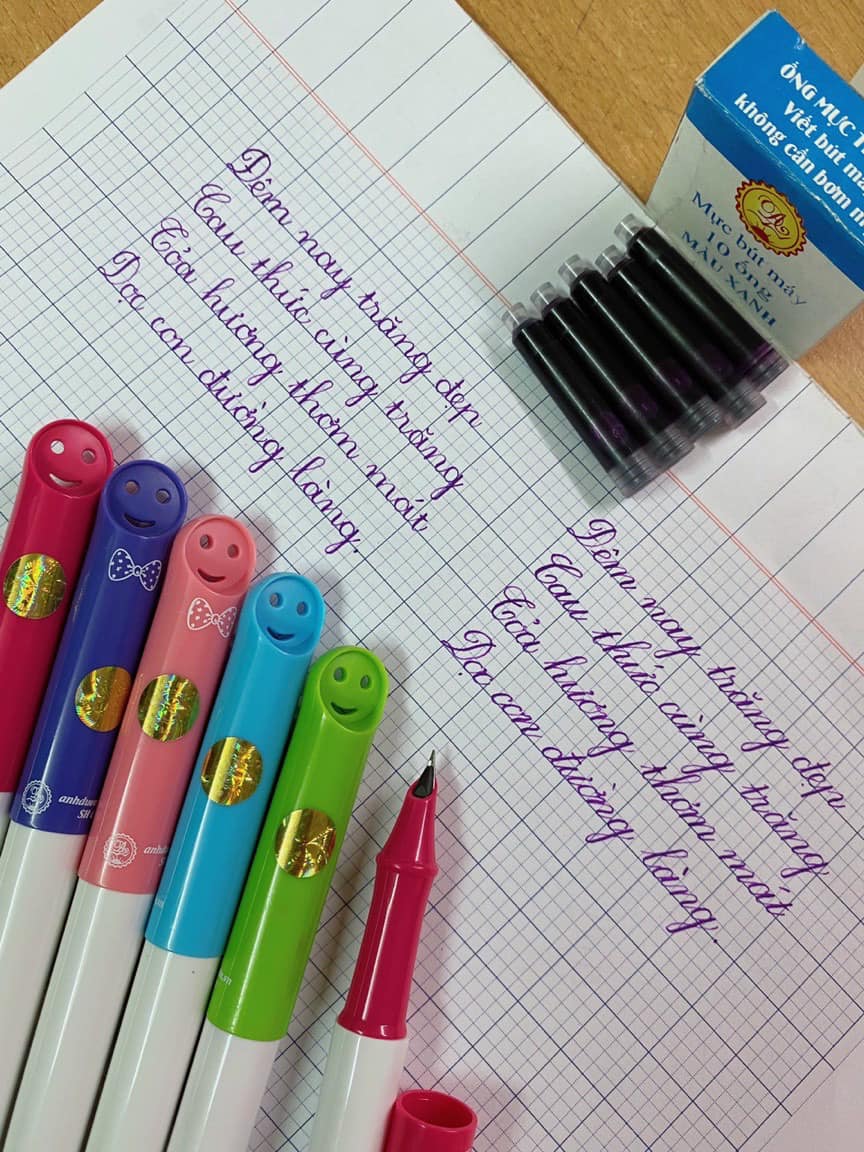 ỐNG MỰC
Viết bút
không cần bơm
Mực bút máy
10 ống
MÀU XANH
Đêm nay trăng đẹp
Cau thức cùng trăng
Tỏa hương thơm mát
Dọc con đường làng.
Đêm nay trăng đẹp
Cau thức cùng trăng,
Tỏa hương thơm mát
Dọc con đường làng.